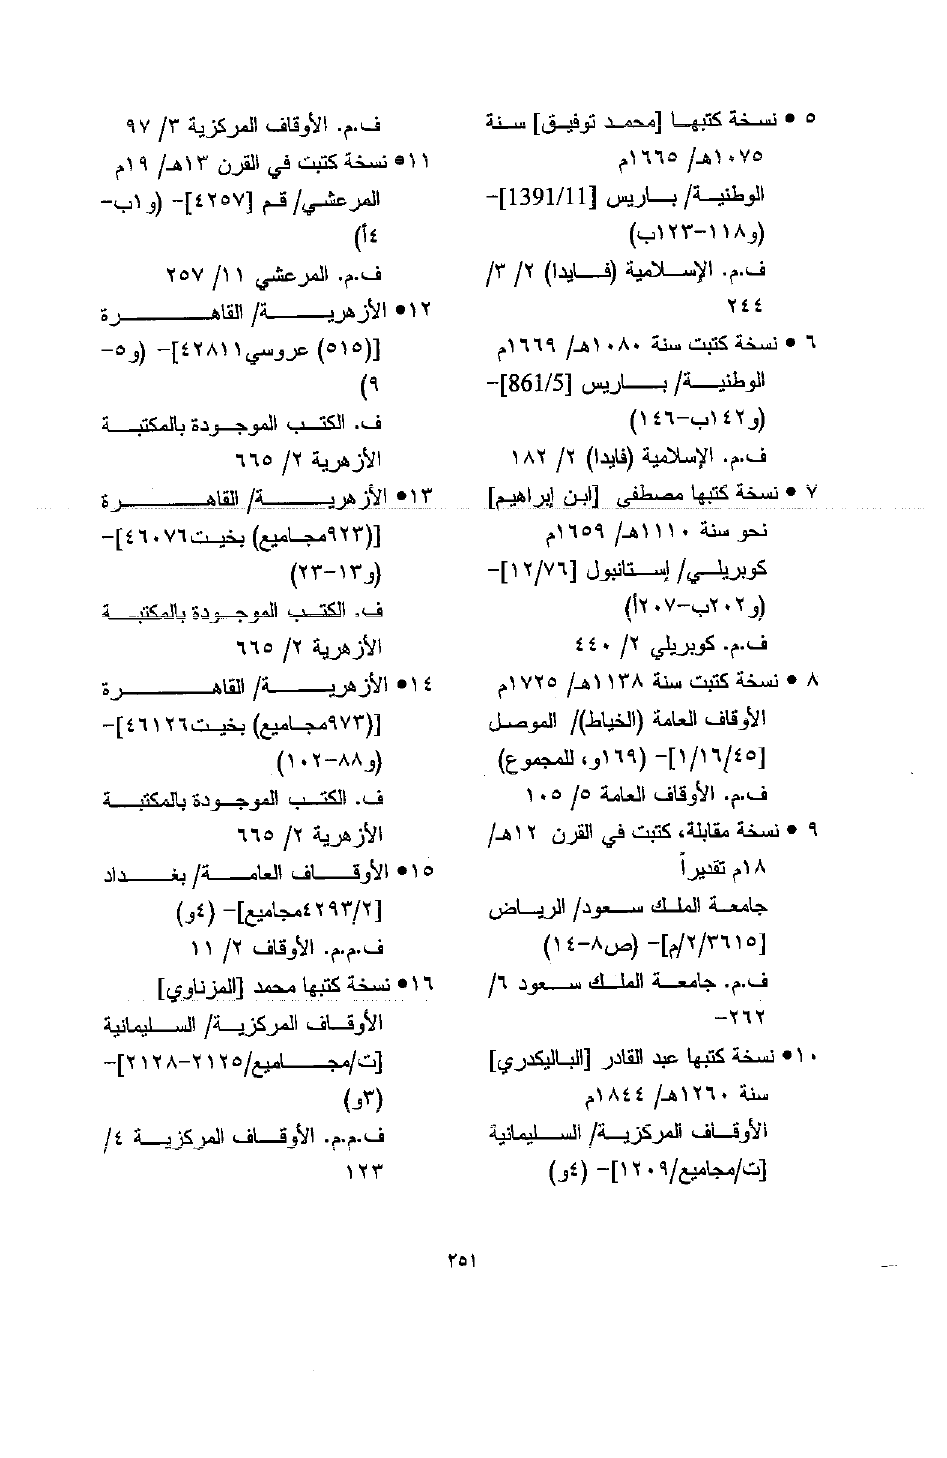 ٥ • نسخة كتبها [محمد توفيق] سنة
١٠٧٥هـ/ ١٦٦٥م
الوطنية/ باريس [1391/11]-
(و١١٨-١٢٣ب)
ف.م. الإسلامية (فايدا) ٢/ ٣/
٢٤٤
٦ • نسخة كتبت سنة ١٠٨٠هـ/ ١٦٦٩م
الوطنية/ باريس [861/5]-
(و١٤٢ب-١٤٦)
ف.م. الإسلامية (فايدا) ٢/ ١٨٢
٧ • نسخة كتبها مصطفى [ابن إبراهيم]
نحو سنة ١١١٠هـ/ ١٦٥٩م
كوبريلي/ إستانبول [١٢/٧٦]-
(و٢٠٢ب-٢٠٧أ)
ف.م. كوبريلي ٢/ ٤٤٠
٨ • نسخة كتبت سنة ١١٣٨هـ/ ١٧٢٥م
الأوقاف العامة (الخياط)/ الموصل
[١/١٦/٤٥]- (١٦٩و، للمجموع)
ف.م. الأوقاف العامة ٥/ ١٠٥
٩ • نسخة مقابلة، كتبت في القرن ١٢هـ/
١٨م تقديراً
جامعة الملك سعود/ الرياض
[٢/٣٦١٥/م]- (ص٨-١٤)
ف.م. جامعة الملك سعود ٦/
٢٦٢-
١٠• نسخة كتبها عبد القادر [الباليكدري]
سنة ١٢٦٠هـ/ ١٨٤٤م
الأوقاف المركزية/ السليمانية
[ت/مجاميع/١٢٠٩]- (٤و)
ف.م. الأوقاف المركزية ٣/ ٩٧
١١• نسخة كتبت في القرن ١٣هـ/ ١٩م
المرعشي/ قم [٤٢٥٧]- (و١ب-
٤أ)
ف.م. المرعشي ١١/ ٢٥٧
١٢• الأزهرية/ القاهرة
[(٥١٥) عروسي٤٢٨١١]- (و٥-
٩)
ف. الكتب الموجودة بالمكتبة
الأزهرية ٢/ ٦٦٥
١٣• الأزهرية/ القاهرة
[(٩٢٣مجاميع) بخيت٤٦٠٧٦]-
(و١٣-٢٣)
ف. الكتب الموجودة بالمكتبة
الأزهرية ٢/ ٦٦٥
١٤• الأزهرية/ القاهرة
[(٩٧٣مجاميع) بخيت٤٦١٢٦]-
(و٨٨-١٠٢)
ف. الكتب الموجودة بالمكتبة
الأزهرية ٢/ ٦٦٥
١٥• الأوقاف العامة/ بغداد
[٤٢٩٣/٢مجاميع]- (٤و)
ف.م.م. الأوقاف ٢/ ١١
١٦• نسخة كتبها محمد [المزناوي]
الأوقاف المركزية/ السليمانية
[ت/مجاميع/٢١٢٥-٢١٢٨]-
(٣و)
ف.م.م. الأوقاف المركزية ٤/
١٢٣
٢٥١